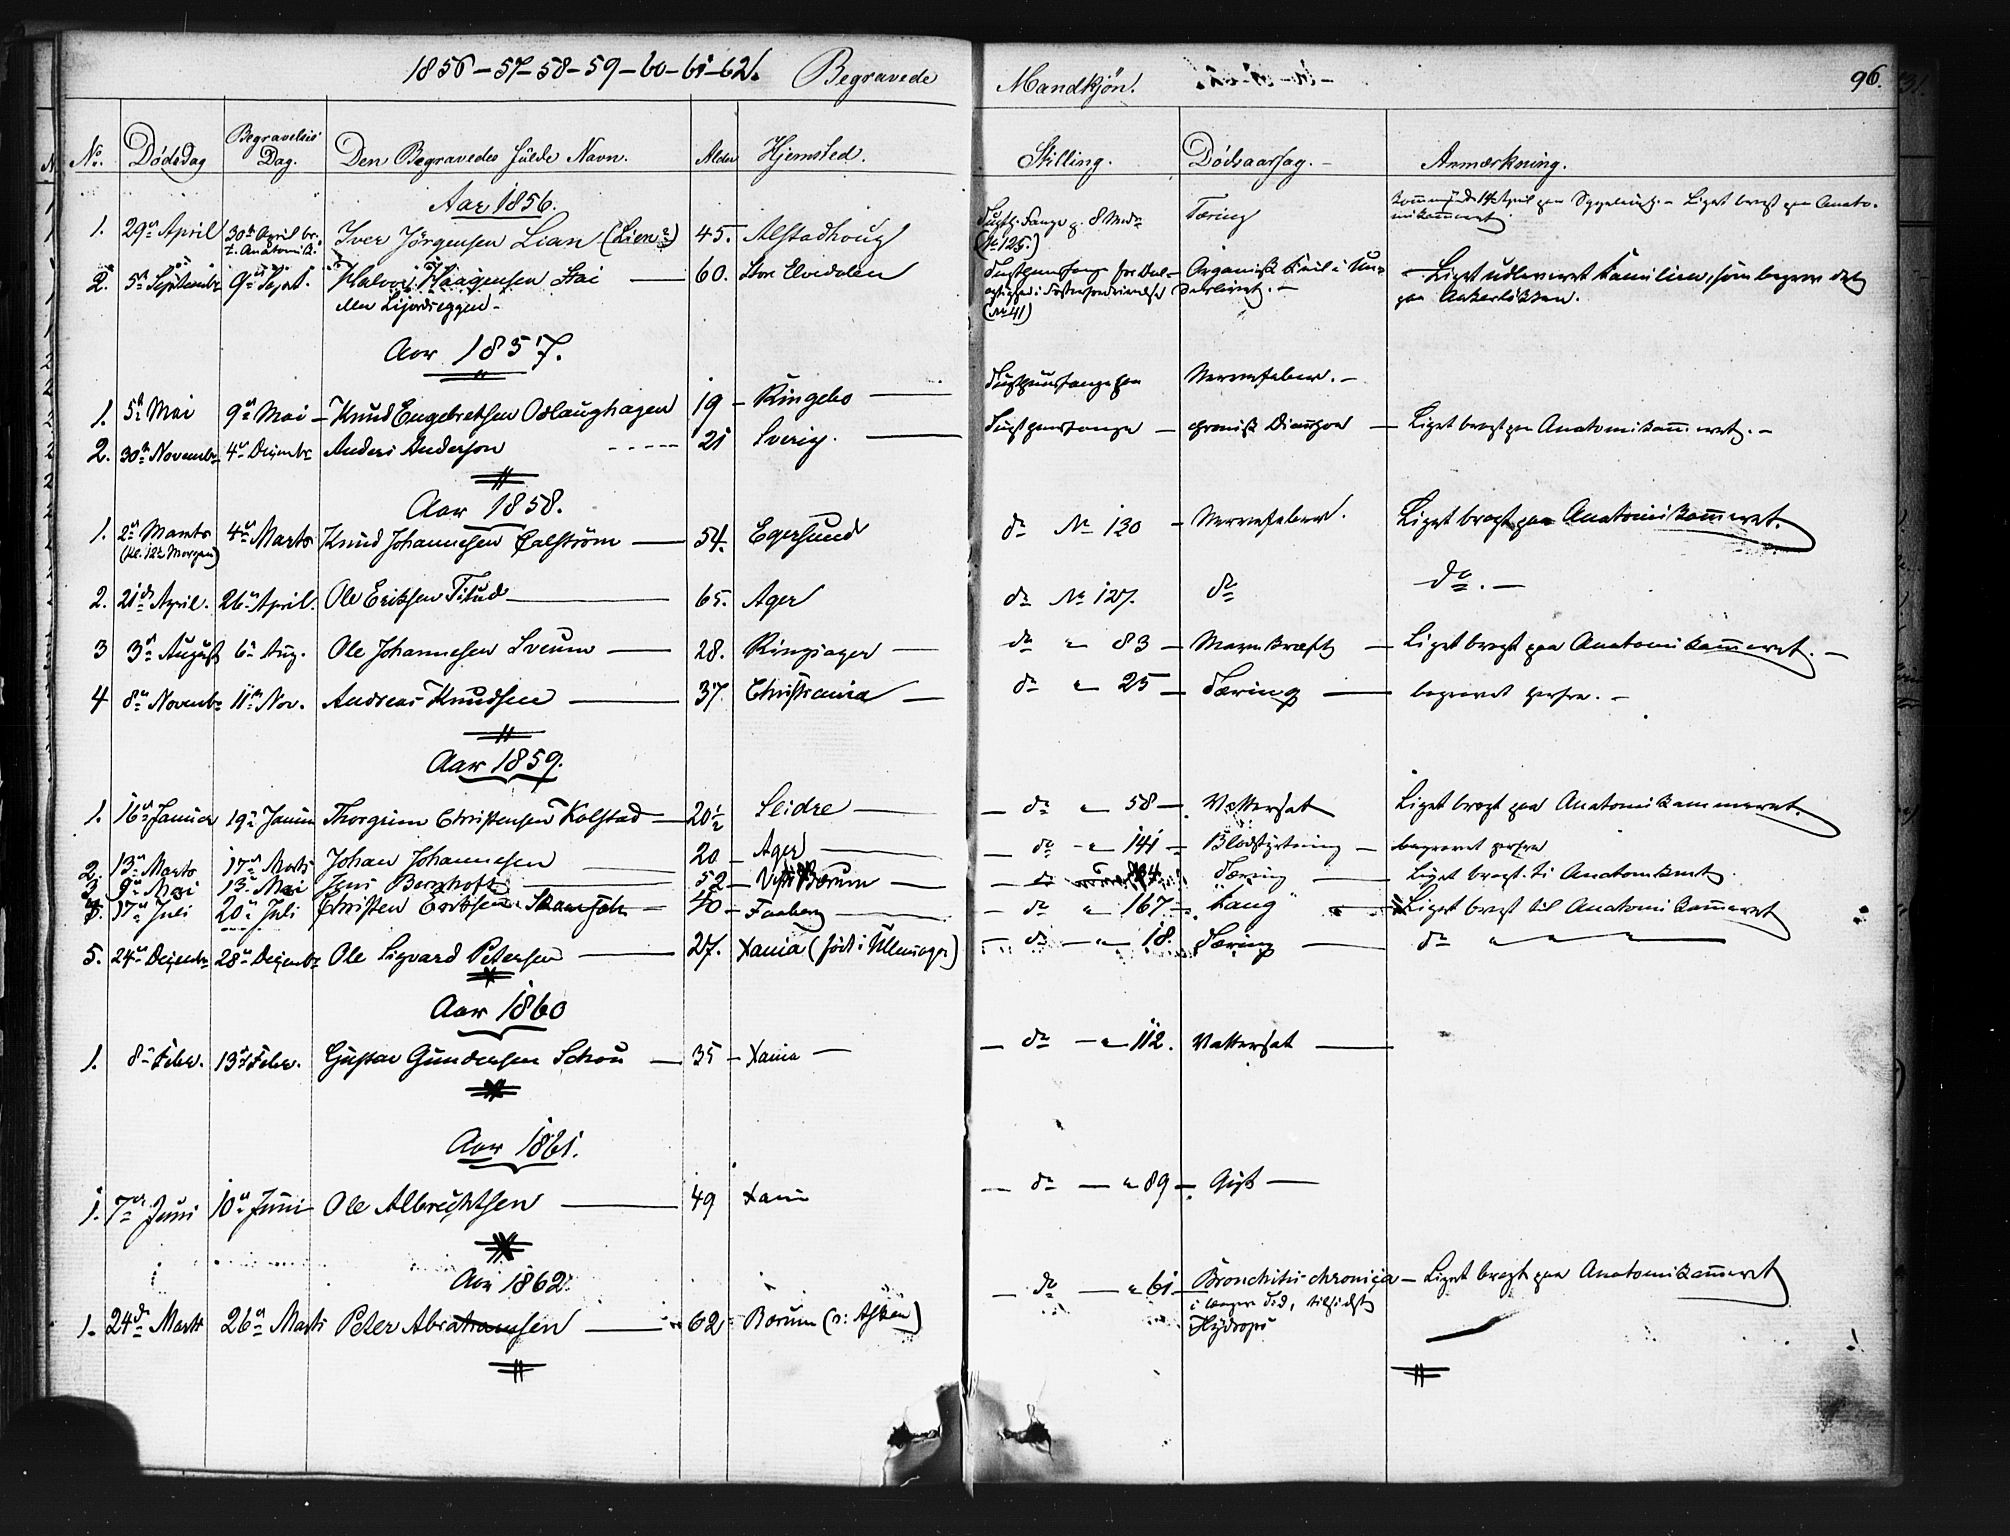 1856-57-58-59-60-61-62. Begravede Mandkjön. 96.
No. Dödsdag Begravelses Dag. Den Begravedes fulde Navn. Alder Hjemsted. Stilling. Dödsaarsag. Anmærkning.
Aar 1856.
1. 29de April 30te April Iver Jörgensen Lian (Lien?) 45. Alstadhoug (No 125.) Tæring
2. 5te Septembr 9de Sept. Halvor Haagensen Stai 60. Store Elvedalen (No 41) Liget udleveret Familien, som begrov det
eller Ljordseggen paa Ankerlökken.
Aar 1857.
1. 5te Mai 9de Mai Knud Engebretsen Oslaughagen 19 Ringebo Tugthusfange Nervefeber.
2. 30te Novembr 4de Decembr Anders Anderson 21 Sverig. Tugthusfange chronisk Diarrhoe Liget bragt paa Anatomikammeret.
Aar 1858.
1. 2den Marts 4de Marts Knud Johannesen 54. Egersund do No 130 Nervefeber. Liget bragt paa Anatomikammeret.
(Kl. 12½ Morgen)
2. 21de April. 26de April. Ole Eriksen 65. Ager do No 127. do do.
3 3de August 6te Aug. Ole Johannesen Sveum 28. Ringsager do " 83 Liget bragt paa Anatomikammeret.
4 8de Novembr 11te Nov. Andreas Knudsen 37. Christiania do " 25 Tæring begravet herfra.
Aar 1859.
1. 16de Januar 19de Januar Thorgrim Christensen Kolstad 20½ Slidre do " 58 Vattersot Liget bragt paa Anatomikammeret.
2. 13de Marts 17de Marts Johan Johannesen 20 Ager do " 141 Blodstyrtning begravet herfra
3. 9de Mai 13de Mai Jens Bernhoft 52 Vestre Bærum do Tæring Liget bragt ti Anatomkmt.
4. 17de Juli 20de Juli Christen Eriksen 40 Faaberg do " 167 Liget bragt til Anatomikammeret
5. 24de Decembr 28de Decembr Ole Sigvard Petersen 27. Xania (född i Ullensager) do " 18. Tæring do " " " "
Aar 1860
1. 8de Febr. 13de Febr. Gustav Gundersen Schou 35 Xania do " 112. Vattersot
Aar 1861.
1. 7de Juni 10de Juni Ole Albrechtsen 49 Xania do " 89 Gigt
Aar 1862.
1. 24de Marts 26de Marts Peter Abrahamsen 62 Bærum (o: Asker) do " 61 Bronchitis chronica Liget bragt paa Anatomikammeret
i længere Tid, tilsidst
Hydrops